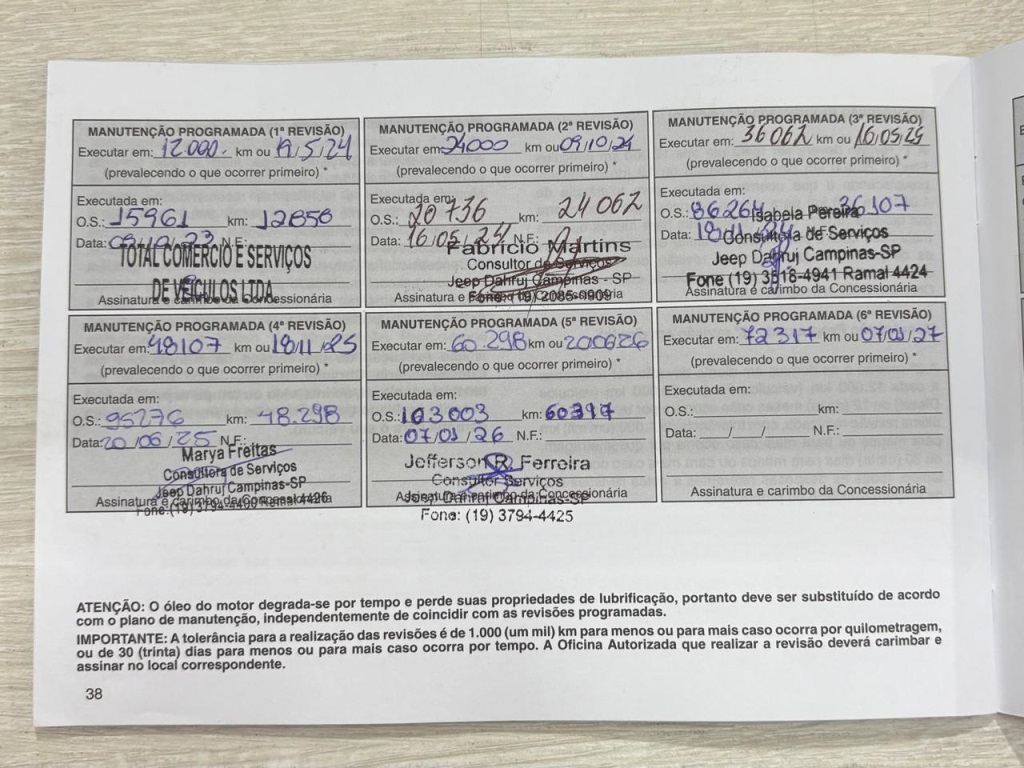 MANUTENÇÃO PROGRAMADA (1ª REVISÃO)
Executar em: 12.000. km ou 19/5/24
(prevalecendo o que ocorrer primeiro) *
Executada em:
O.S.: 15961 km: 12858
Data: 09/10/23 N.F.:
TOTAL COMERCIO E SERVIÇOS
DE VEÍCULOS LTDA
Assinatura e carimbo da Concessionária
MANUTENÇÃO PROGRAMADA (2ª REVISÃO)
Executar em: 24000 km ou 09/10/24
(prevalecendo o que ocorrer primeiro) *
Executada em:
O.S.: 20736 km: 24062
Data: 16/05/24 N.F.:
Fabricio Martins
Consultor de Serviços
Jeep Dahruj Campinas - SP
Assinatura e carimbo da Concessionária
Fone: (19) 2085-0909
MANUTENÇÃO PROGRAMADA (3ª REVISÃO)
Executar em: 36062 km ou 16/05/25
(prevalecendo o que ocorrer primeiro) *
Executada em:
O.S.: 86264 km: 36107
Isabela Pereira
Data: 18/11/24 N.F.:
Consultora de Serviços
Jeep Dahruj Campinas-SP
Fone (19) 3518-4941 Ramal 4424
Assinatura e carimbo da Concessionária
MANUTENÇÃO PROGRAMADA (4ª REVISÃO)
Executar em: 48107 km ou 18/11/25
(prevalecendo o que ocorrer primeiro) *
Executada em:
O.S.: 95276 km: 48.298
Data: 20/06/25 N.F.:
Marya Freitas
Consultora de Serviços
Jeep Dahruj Campinas-SP
Assinatura e carimbo da Concessionária
Fone: (19) 3794-4400 Ramal 4426
MANUTENÇÃO PROGRAMADA (5ª REVISÃO)
Executar em: 60.298 km ou 20/06/26
(prevalecendo o que ocorrer primeiro) *
Executada em:
O.S.: 103003 km: 60397
Data: 07/01/26 N.F.:
Jefferson R. Ferreira
Consultor Serviços
Assinatura e carimbo da Concessionária
Jeep Dahruj Campinas-SP
Fone: (19) 3794-4425
MANUTENÇÃO PROGRAMADA (6ª REVISÃO)
Executar em: 72317 km ou 07/01/27
(prevalecendo o que ocorrer primeiro) *
Executada em:
O.S.: km:
Data: / / N.F.:
Assinatura e carimbo da Concessionária
ATENÇÃO: O óleo do motor degrada-se por tempo e perde suas propriedades de lubrificação, portanto deve ser substituído de acordo
com o plano de manutenção, independentemente de coincidir com as revisões programadas.
IMPORTANTE: A tolerância para a realização das revisões é de 1.000 (um mil) km para menos ou para mais caso ocorra por quilometragem,
ou de 30 (trinta) dias para menos ou para mais caso ocorra por tempo. A Oficina Autorizada que realizar a revisão deverá carimbar e
assinar no local correspondente.
38